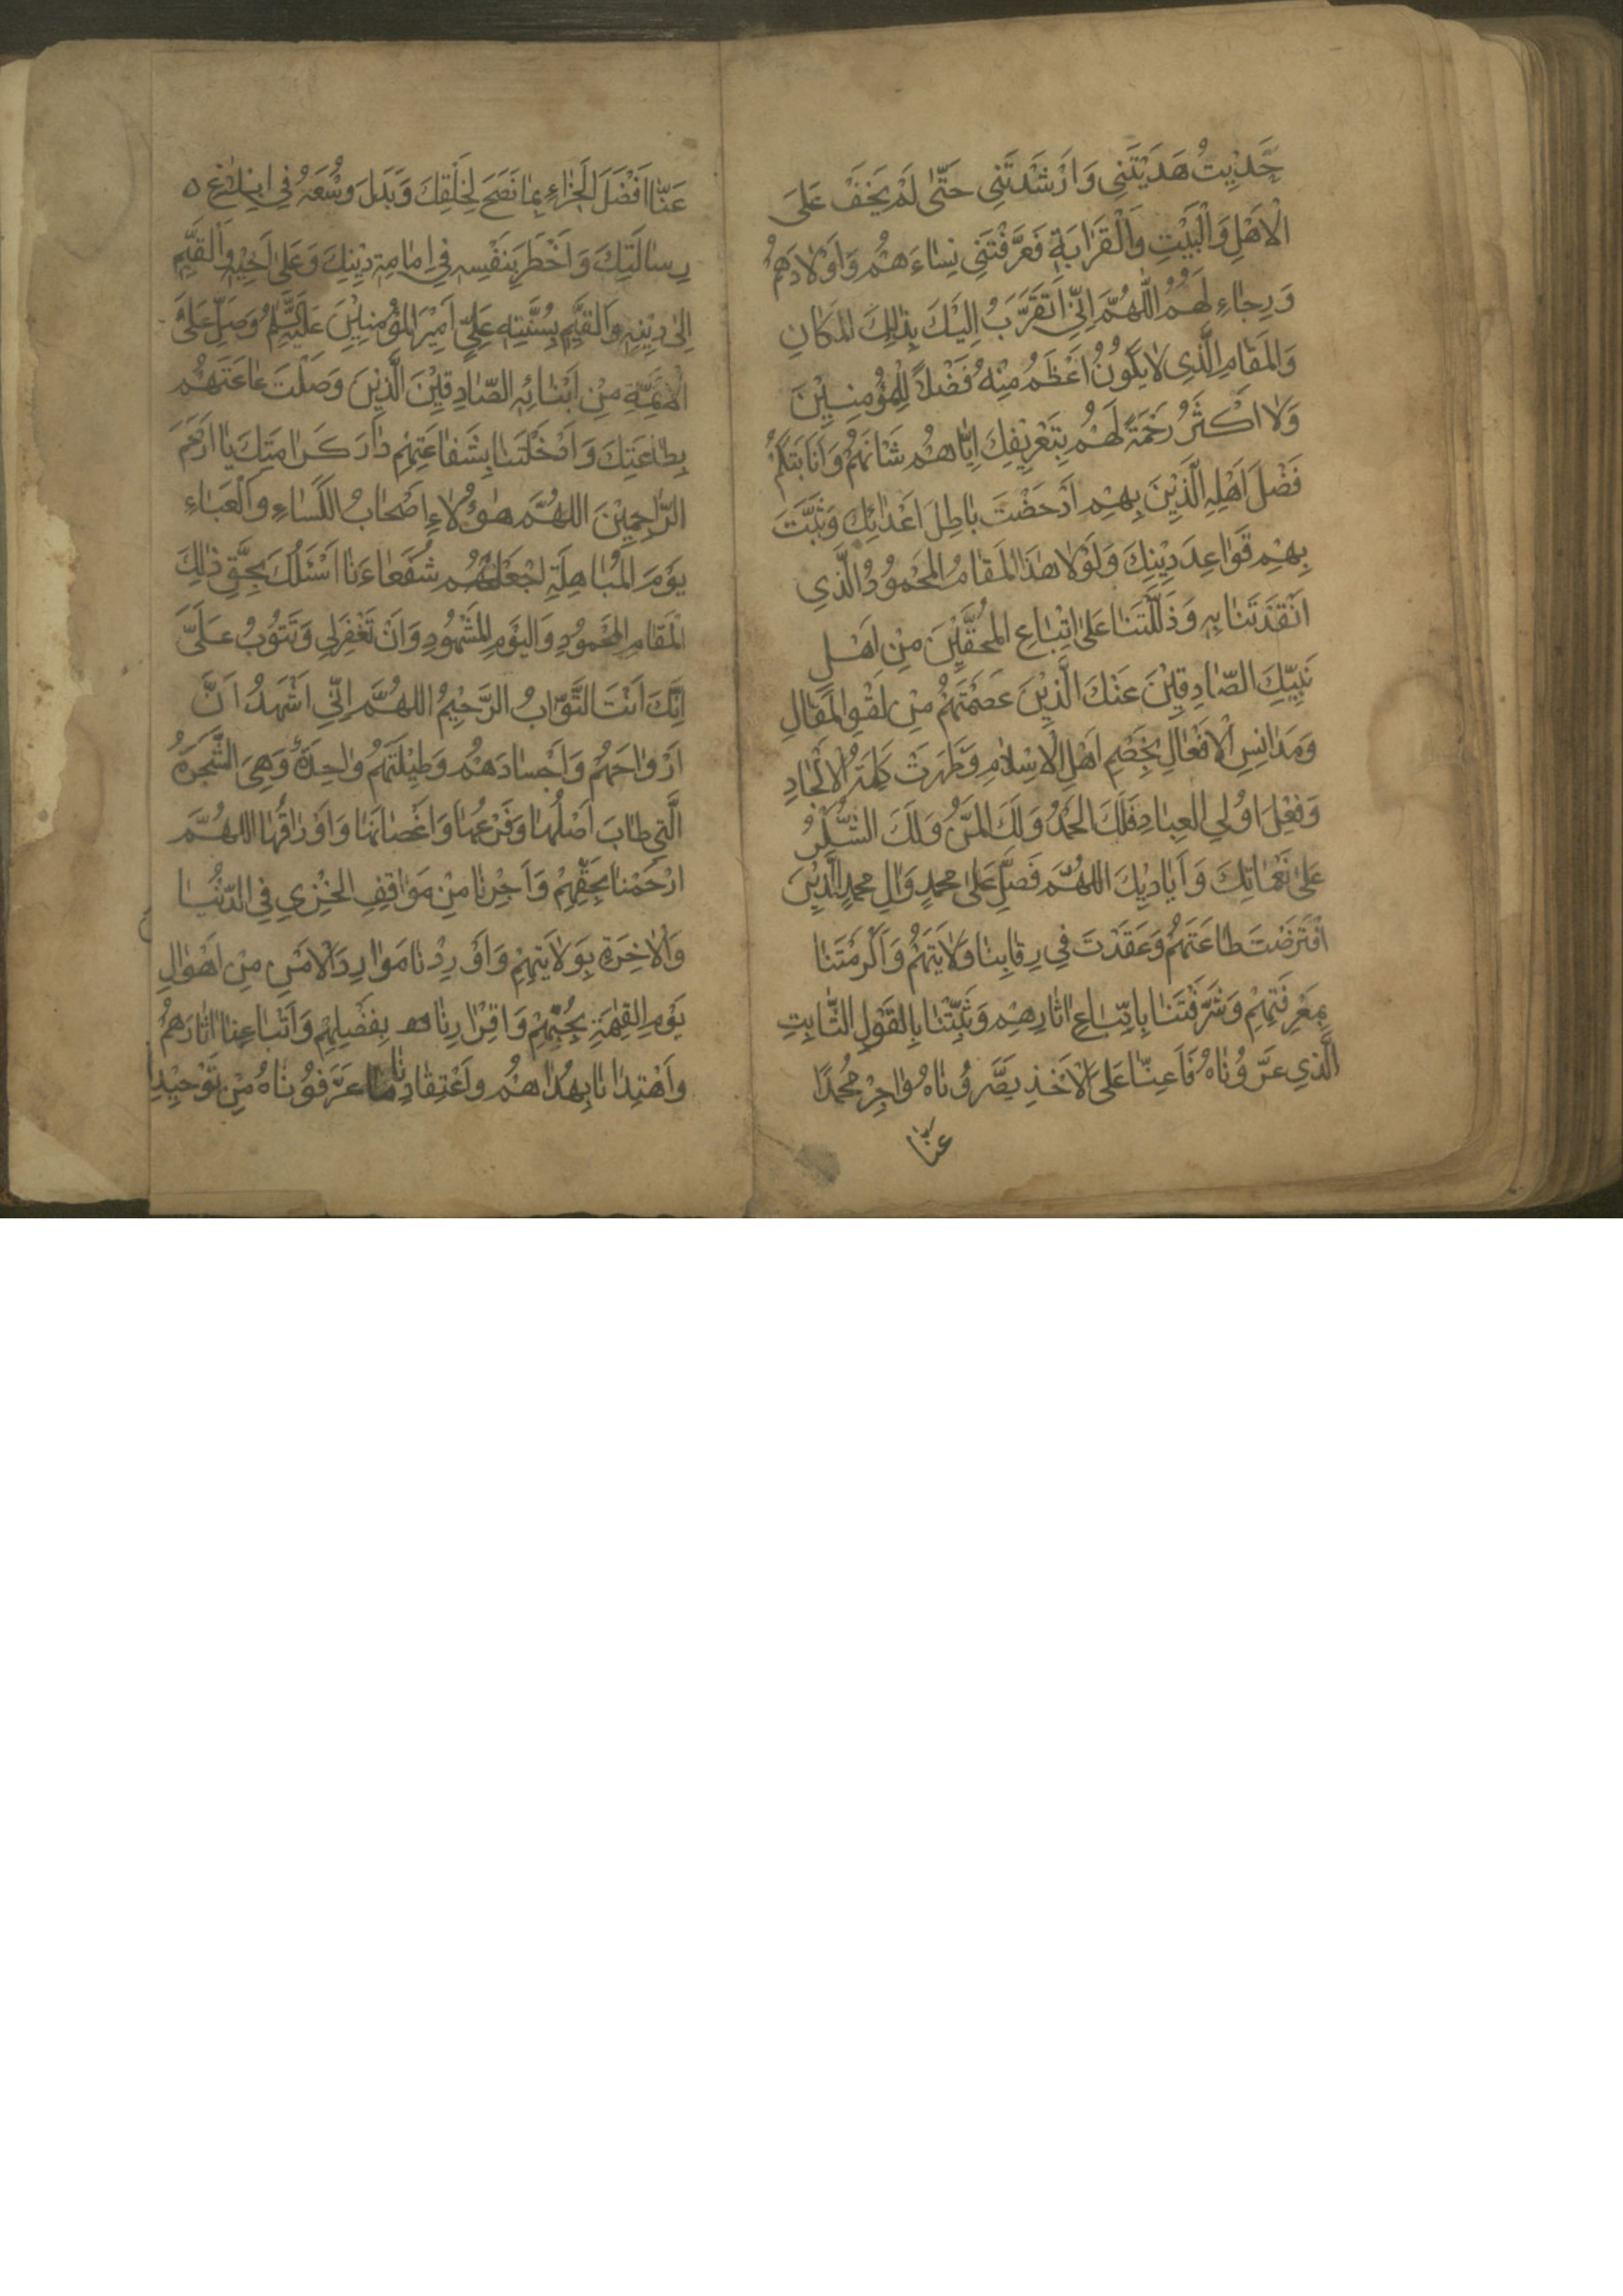 حَدِيثُ هَدَيْتَنِي وَاَرْشَدْتَنِي حَتّٰى لَمْ يَخْفَ عَلَى
الْاَهْلِ وَالْبَيْتِ وَالْقَرَابَةِ فَعَرَّفْتَنِي نِسَاءَهُمْ وَاَوْلَادَهُمْ
وَرِجَاءِ لَهُمْ اَللّٰهُمَّ اِنِّي اَتَقَرَّبُ اِلَيْكَ بِذٰلِكَ الْمَكَانِ
وَالْمَقَامِ الَّذِي لَا يَكُونُ اَعْظَمُ مِنْهُ فَضْلًا لِلْمُؤْمِنِيْنَ
وَلَا اَكْثَرُ رَحْمَةً لَهُمْ بِتَعْرِيفِكَ اِيَّاهُمْ شَانَهُمْ
فَضْلَ اَهْلِهِ الَّذِيْنَ بِهِمْ اَدْحَضْتَ بَاطِلَ اَعْدَائِكَ وَثَبَّتَ
بِهِمْ قَوَاعِدَ دِيْنِكَ وَلَوْلَا هٰذَا الْمَقَامُ الْمَحْمُودُ الَّذِي
اَنْقَذْتَنَا بِهِ وَذَلَّلْتَنَا عَلَى اتِّبَاعِ الْمُحِقِّيْنَ مِنْ اَهْلِ
نَبِيِّكَ الصَّادِقِيْنَ عَنْكَ الَّذِيْنَ عَصَمْتَهُمْ مِنْ لَغْوِ الْمَقَالِ
وَمَدَانِسِ الْاَفْعَالِ بِخَصْمِ اَهْلِ الْاِسْلَامِ وَظَهَرَتْ كَلِمَةُ الْاِلْحَادِ
وَفِعْلُ اُولِي الْعِبَادِ فَلَكَ الْحَمْدُ وَلَكَ الْمَنُّ وَلَكَ الشُّكْرُ
عَلٰى نَعْمَائِكَ وَاَيَادِيْكَ اَللّٰهُمَّ فَصَلِّ عَلٰى مُحَمَّدٍ وَاٰلِ مُحَمَّدٍ الَّذِيْنَ
افْتَرَضْتَ طَاعَتَهُمْ وَعَقَدْتَ فِي رِقَابِنَا وَلَايَتَهُمْ وَاَكْرَمْتَنَا
بِمَعْرِفَتِهِمْ وَشَرَّفْتَنَا بِاتِّبَاعِ اٰثَارِهِمْ وَثَبَّتْنَا بِالْقَوْلِ الثَّابِتِ
الَّذِي عَرَّفُونَاهُ فَاَعِنَّا عَلَى الْاَخْذِ بَصَّرُونَاهُ وَاجْزِ مُحَمَّدًا
عَنَّا
عَنَّا اَفْضَلَ الْجَزَاءِ بِمَا نَصَحَ لِخَلْقِكَ وَبَذَلَ وُسْعَهُ فِي اِبْلَاغِ
رِسَالَتِكَ وَاَخْطَرَ بِنَفْسِهِ فِي اِمَامَةِ دِيْنِكَ وَعَلٰى اَخِيْهِ وَالْقَيِّمِ
اِلٰى دِيْنِهِ وَالْقَيِّمِ بِسُنَّتِهِ عَلِيٍّ اَمِيْرِ الْمُؤْمِنِيْنَ عَلَيْهِ السَّلَامُ وَصَلِّ عَلَى
الْاَئِمَّةِ مِنْ اَبْنَائِهِ الصَّادِقِيْنَ الَّذِيْنَ وَصَلْتَ طَاعَتَهُمْ
بِطَاعَتِكَ وَاَدْخَلْتَنَا بِشَفَاعَتِهِمْ دَارَ كَرَامَتِكَ يَا اَرْحَمَ
الرَّاحِمِيْنَ اَللّٰهُمَّ هٰؤُلَاءِ اَصْحَابُ الْكِسَاءِ وَالْعَبَاءِ
يَوْمَ الْمُبَاهِلَةِ اجْعَلْهُمْ شُفَعَاءَنَا اَسْئَلُكَ بِحَقِّ ذٰلِكَ
الْمَقَامِ الْمَحْمُودِ وَالْيَوْمِ الْمَشْهُودِ وَاَنْ تَغْفِرَ لِي وَتَتُوبَ عَلَيَّ
اِنَّكَ اَنْتَ التَّوَّابُ الرَّحِيْمُ اَللّٰهُمَّ اِنِّي اَشْهَدُ اَنَّ
اَرْوَاحَهُمْ وَاَجْسَادَهُمْ وَطِيْنَتَهُمْ وَاحِدَةٌ وَهِيَ الشَّجَرَةُ
الَّتِي طَابَ اَصْلُهَا وَفَرْعُهَا وَاَغْصَانُهَا وَاَوْرَاقُهَا اَللّٰهُمَّ
ارْحَمْنَا بِحَقِّهِمْ وَاَجِرْنَا مِنْ مَوَاقِفِ الْخِزْيِ فِي الدُّنْيَا
وَالْاٰخِرَةِ بِوَلَايَتِهِمْ وَاَوْرِدْنَا مَوَارِدَ الْاَمْنِ مِنْ اَهْوَالِ
يَوْمِ الْقِيٰمَةِ بِحُبِّهِمْ وَاِقْرَارِنَا بِفَضْلِهِمْ وَاتِّبَاعِنَا اٰثَارَهُمْ
وَاهْتِدَانَا بِهُدَاهُمْ وَاعْتِقَادِنَا مَا عَرَّفُونَاهُ مِنْ تَوْحِيْدِ